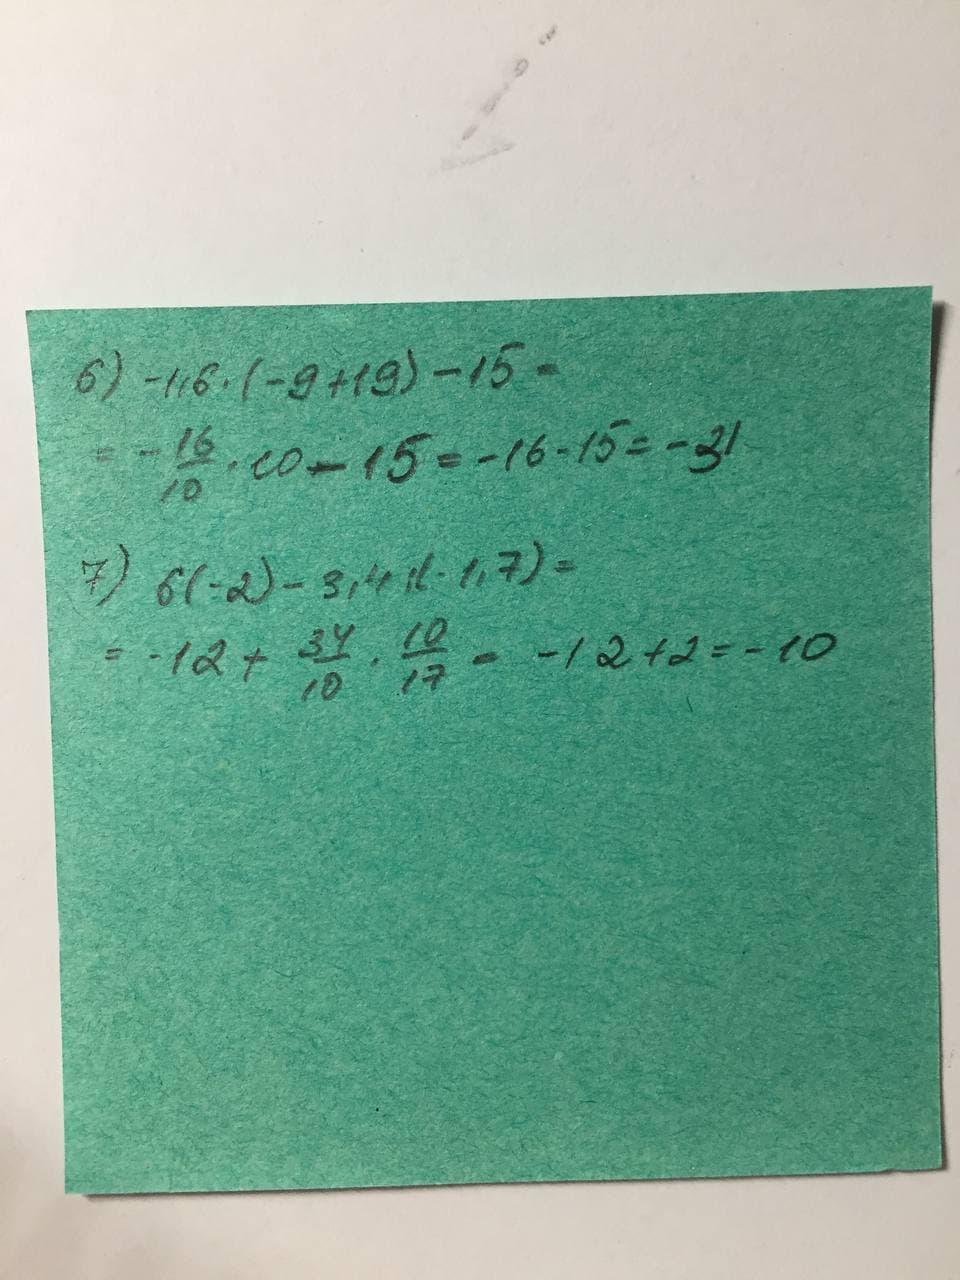 6) -1,6·(-9+19)-15=
= -16/10·10-15=-16-15=-31
7) 6(-2)-3,4:(-1,7)=
= -12+34/10·10/17= -12+2=-10